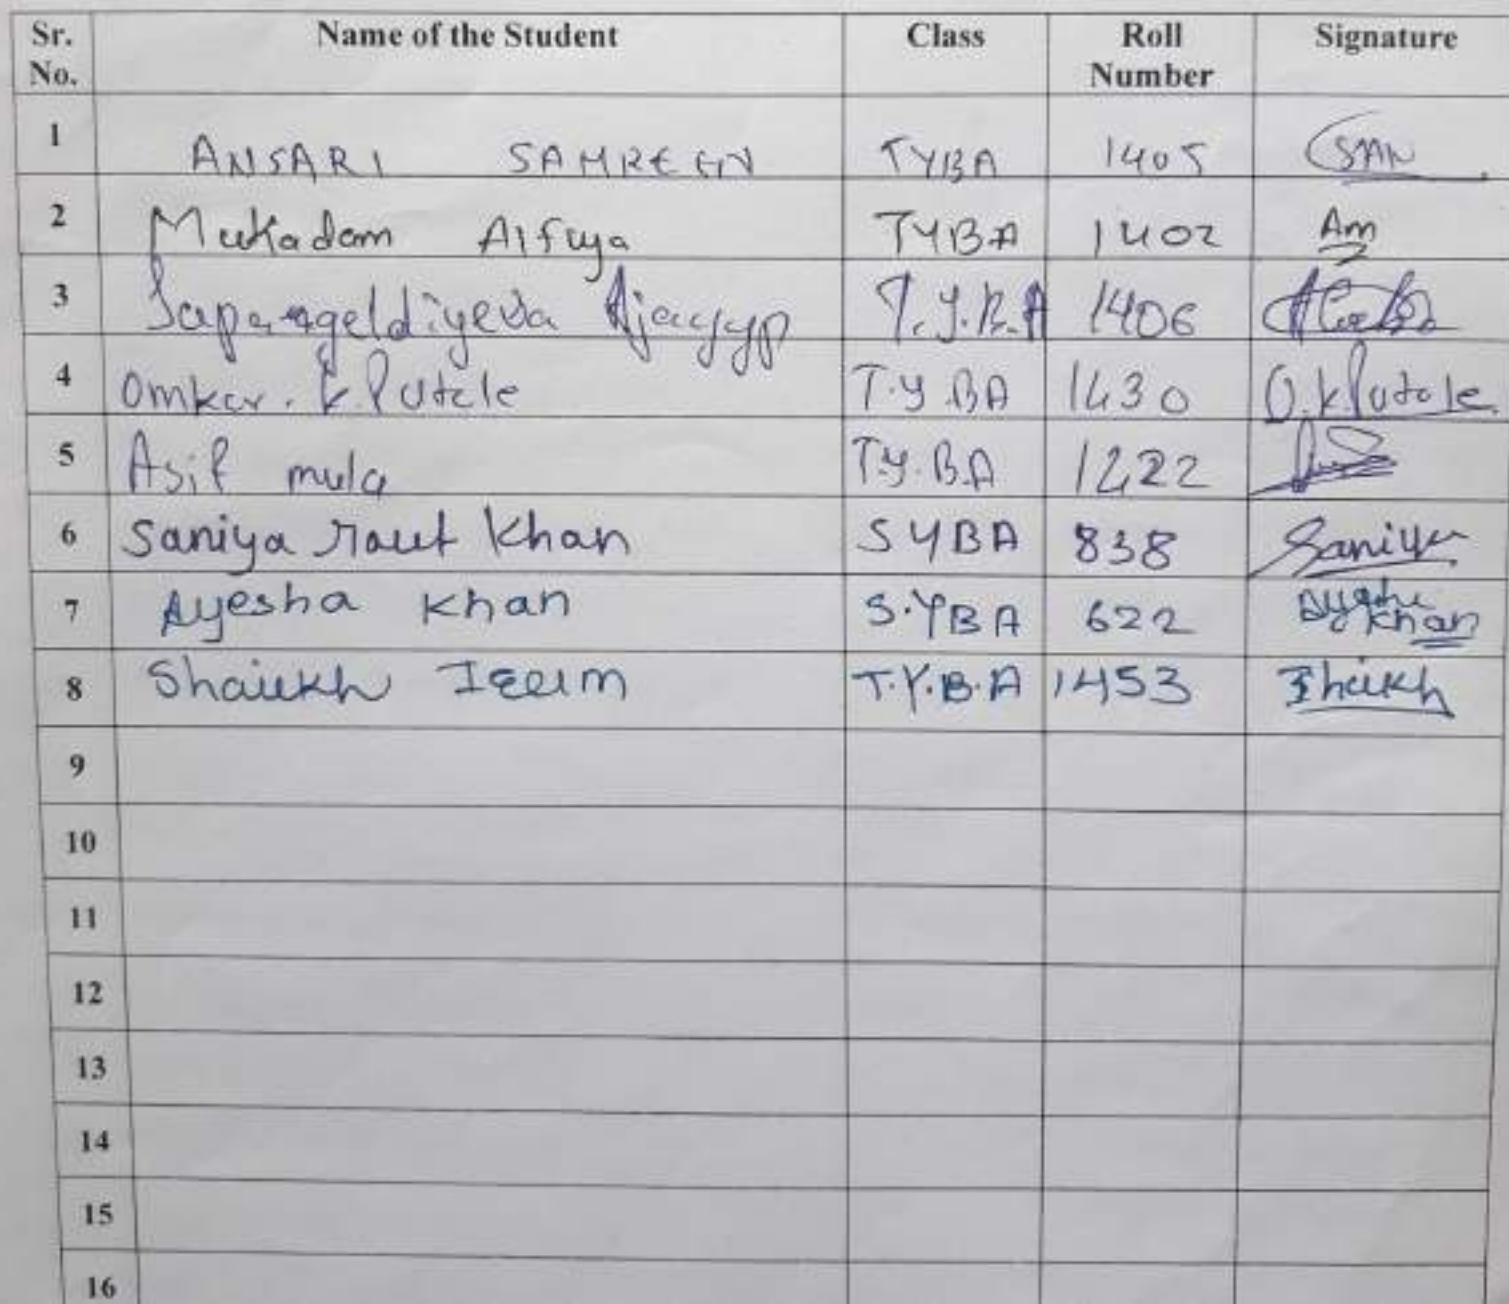 Sr. No. Name of the Student Class Roll Number Signature
1 ANSARI SAMREEN TYBA 1405 SAN
2 Mukadam Alfiya TYBA 1402 Am
3 Sapargeldiyeva Ajayyp T.Y.B.A 1406
4 Omkar. K. Putale T.Y BA 1430 O.K Putale
5 Asif mula T.Y.BA 1422
6 Saniya rauf Khan SYBA 838 Saniya
7 Ayesha Khan S.YBA 622 Khan
8 Shaikh T.Y.B.A 1453 Shaikh
9
10
11
12
13
14
15
16